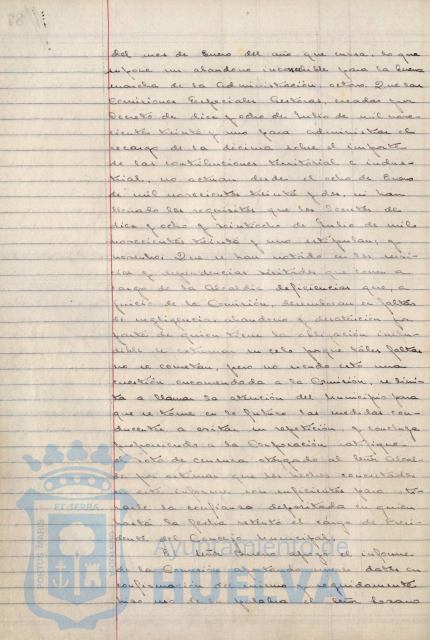 del mes de Enero del año que cursa, lo que
supone un abandono inconcebible para la buena
marcha de la Administración; octavo: Que las
Comisiones Especiales Gestoras, creadas por
Decreto de diez y ocho de Julio de mil nove-
cientos treinta y uno para administrar el
recargo de la décima sobre el importe
de las contribuciones territorial e indus-
trial, no actúan desde el ocho de Enero
de mil novecientos treinta y dos, ni han
llenado los requisitos que los Decretos de
diez y ocho y veintiocho de Julio de mil
novecientos treinta y uno estipulan; y
noveno: Que se han notado en los servi-
cios y dependencias visitadas que corren a
cargo de la Alcaldía deficiencias que, a
juicio de la Comisión, demuestran en faltas
de negligencia, abandono y desatención por
parte de quien tiene la obligación inelu-
dible de extremar su celo porque tales faltas
no se cometan, pero no siendo esto una
cuestión encomendada a la Comisión, se limi-
ta a llamar la atención del Municipio para
que se tome en lo futuro las medidas con-
ducentes a evitar su repetición, y concluye
proponiendo a la Corporación ratifique
el voto de censura otorgado al Señor Alcal-
de por estimar que los hechos concretados
en este informe son suficientes para reti-
rarle la confianza depositada en quien
hasta la fecha ostentó el cargo de Presi-
dente del Concejo Municipal.
El Señor el informe
de la Comisión aportando nuevos datos en
confirmación del mismo y seguidamente
hizo uso de la palabra el Señor Lozano
PORTUS MARIS ET TERRAE CUSTODIA
Ayuntamiento de
HUELVA